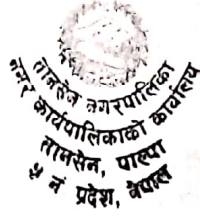 तानसेन नगरपालिका
नगर कार्यपालिकाको कार्यालय
तानसेन, पाल्पा
५ नं प्रदेश, नेपाल